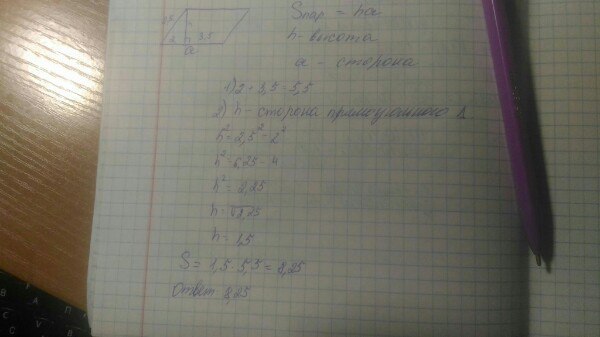 2,5
2 h 3,5
a
Sпар = ha
h - высота
a - сторона
1) 2 + 3,5 = 5,5
2) h - сторона прямоугольного Δ
h² = 2,5² - 2²
h² = 6,25 - 4
h² = 2,25
h = √2,25
h = 1,5
S = 1,5 · 5,5 = 8,25
Ответ 8,25